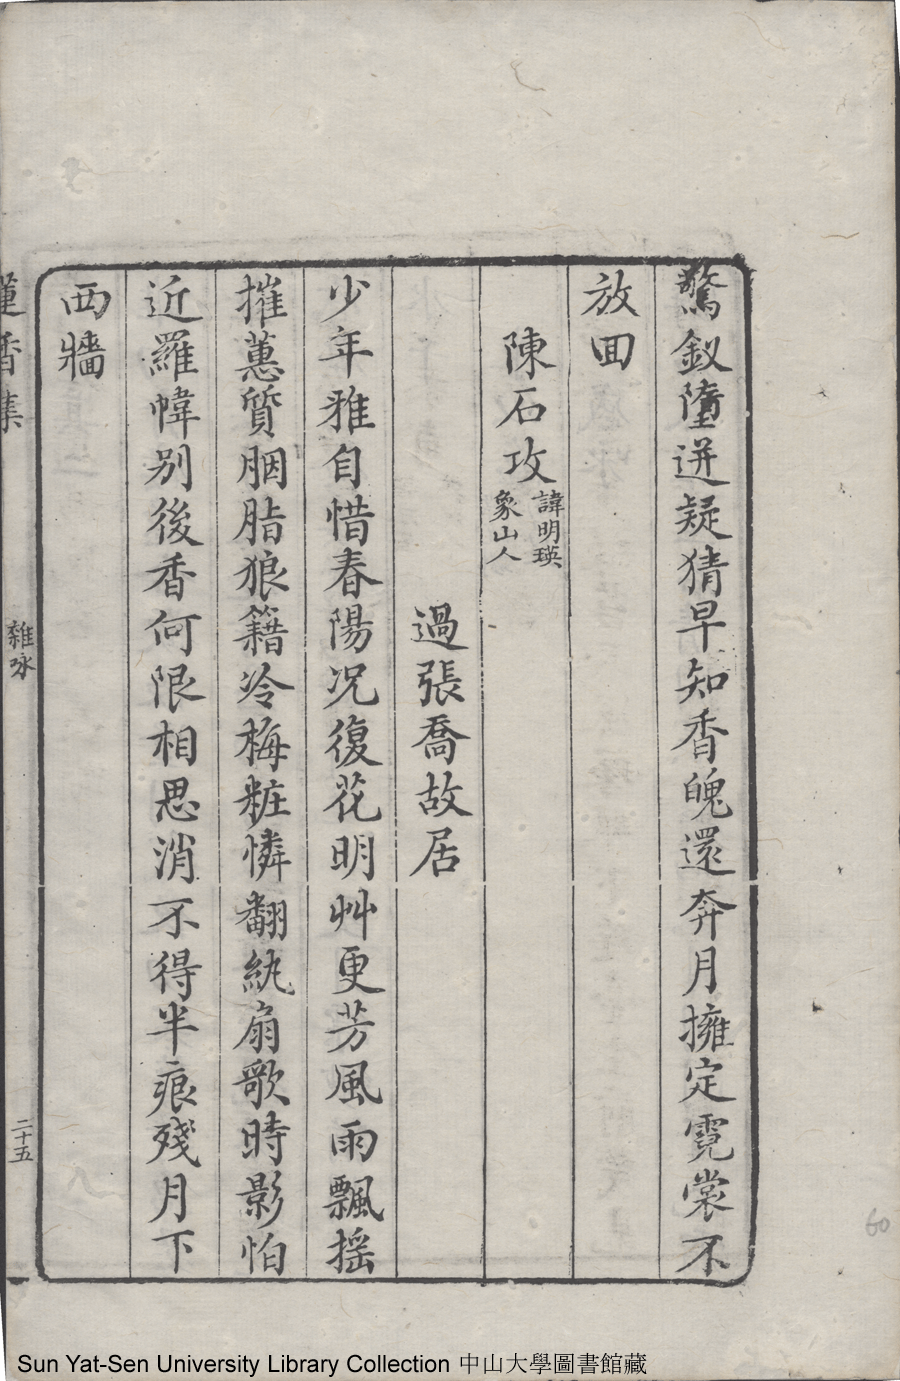 驚釵墮迸疑猜早知香魄還奔月擁定霓裳不
放回
陳石攻
諱明瑛
象山人
過張喬故居
少年雅自惜春陽况復花明艸更芳風雨飄揺
摧蕙質胭脂狼籍冷梅粧憐翻紈扇歌時影怕
近羅幃別後香何限相思消不得半痕殘月下
西牆
蓮香集
雜咏
二十五
60
Sun Yat-Sen University Library Collection 中山大學圖書館藏